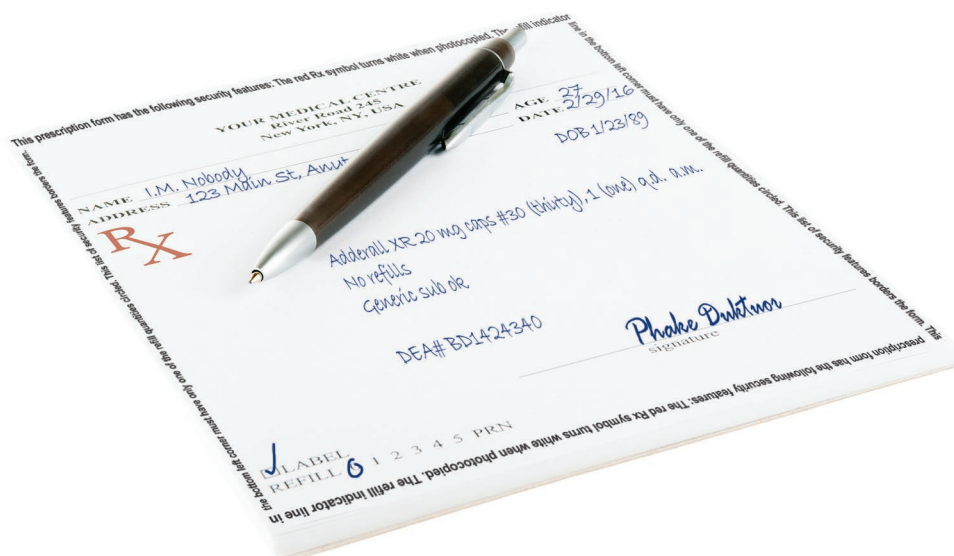 This prescription form has the following security features: The red Rx symbol turns white when photocopied. The refill indicator
line in the bottom left corner must have only one of the refill quantities circled. This list of security features borders the form. This
prescription form has the following security features: The red Rx symbol turns white when photocopied. The refill indicator line in
the bottom left corner must have only one of the refill quantities circled. This list of security features borders the form.
YOUR MEDICAL CENTRE
River Road 245
New York, NY, USA
AGE 27
DATE 2/29/16
DOB 1/23/89
NAME I.M. Nobody
ADDRESS 123 Main St,
RX
Adderall XR 20 mg caps #30 (thirty), 1 (one) q.d. a.m.
No refills
Generic sub ok
DEA# BD1424340
Phake Duktuor
signature
LABEL
REFILL 0 1 2 3 4 5 PRN